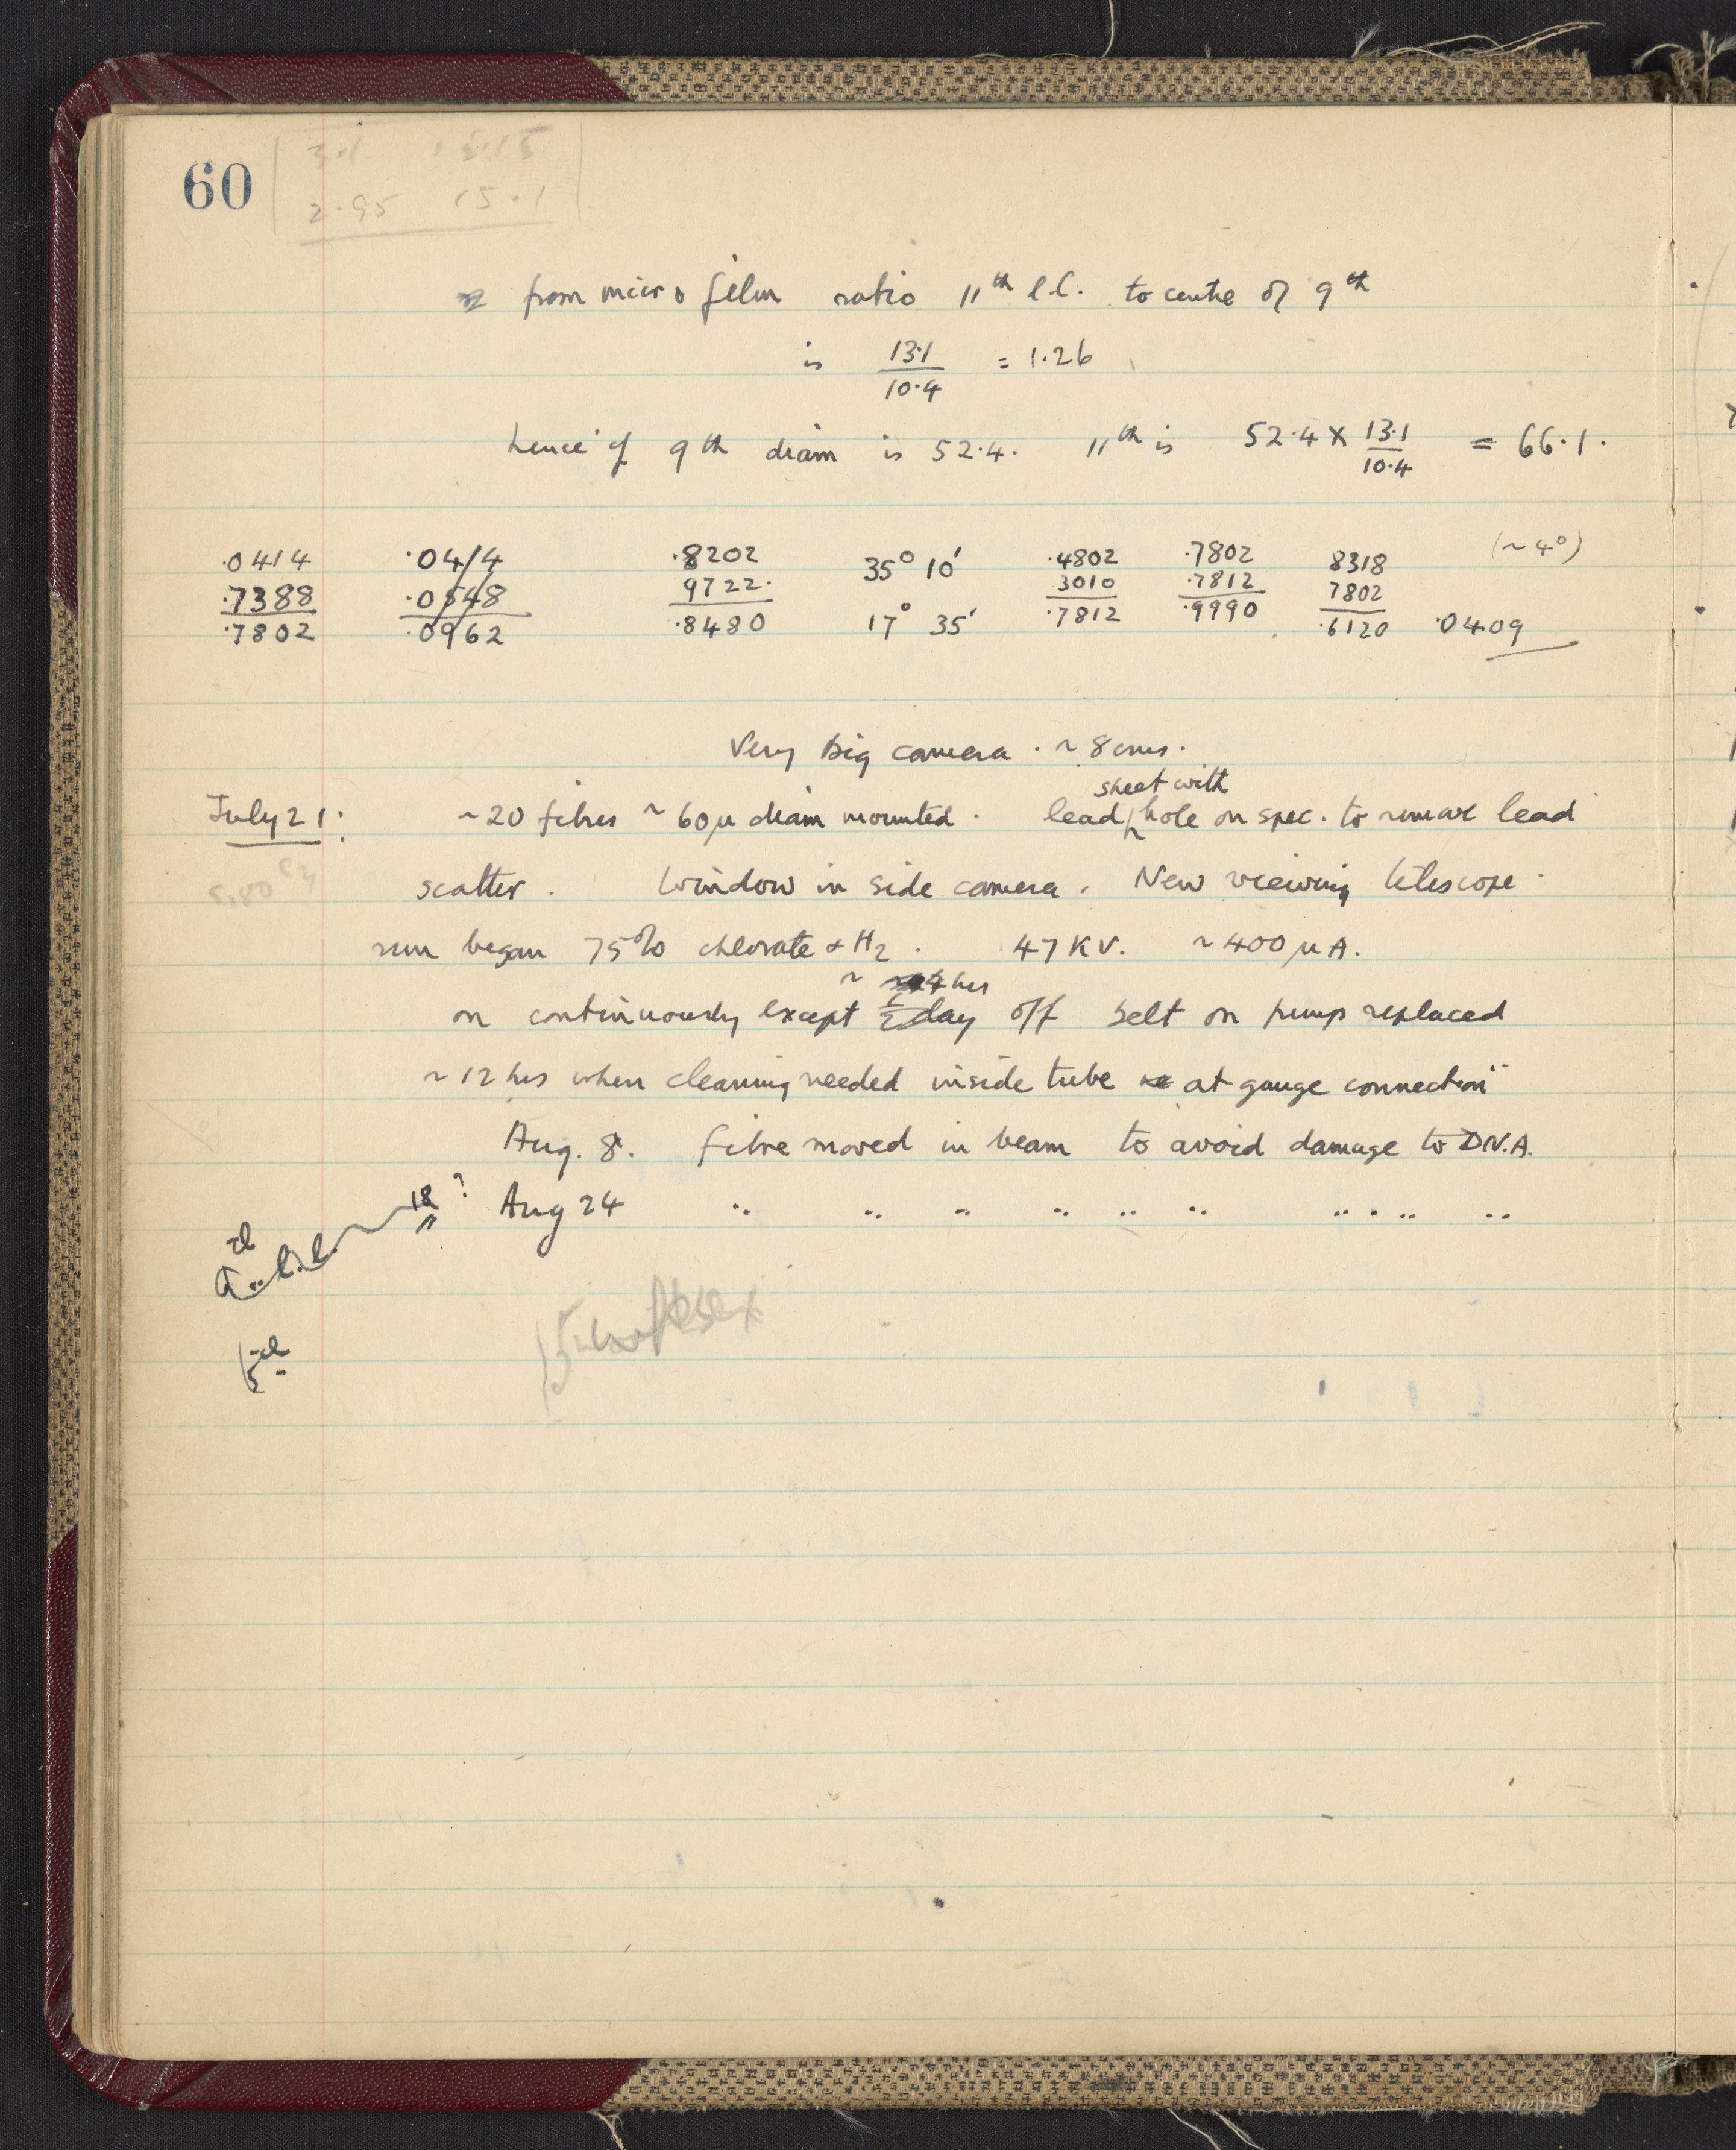 60
3·1 3·15
2·95 15·1
from micro film ratio 11th l.l. to centre of 9th
is 13·1 / 10·4 = 1·26
hence if 9th diam is 52·4. 11th is 52·4 × 13·1 / 10·4 = 66·1.
·0414 ·0414 ·8202 35° 10′ ·4802 ·7802 8318 (~4°)
·7388 ·0548 9722· 3010 ·7812 7802
·7802 ·0962 ·8480 17° 35′ ·7812 ·9990 ·6120 ·0409
Very big camera · ~ 8 cms.
sheet with
July 21: ~20 fibres ~ 60µ diam mounted. lead hole on spec. to remove lead
scatter. Window in side camera. New viewing telescope.
run began 75% chlorate & H2. 47 KV. ~400 µA.
~ hrs
on continuously except ½ day off belt on pump replaced
~12 hrs when cleaning needed inside tube at gauge connection
Aug. 8. fibre moved in beam to avoid damage to D.N.A.
18 ? Aug 24 " " " " " " " "